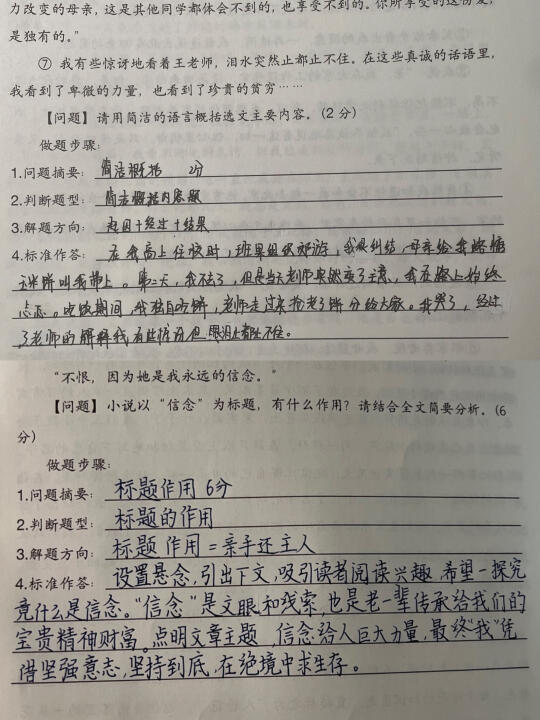 力改变的母亲，这是其他同学都体会不到的，也享受不到的。你所享受的这份爱，
是独有的。”
⑦ 我有些惊讶地看着王老师，泪水突然止都止不住。在这些真诚的话语里，
我看到了卑微的力量，也看到了珍贵的贫穷……
【问题】请用简洁的语言概括选文主要内容。(2 分)
做题步骤：
1.问题摘要：简洁概括 2分
2.判断题型：简洁概括内容题
3.解题方向：起因+经过+结果
4.标准作答：在我高上住校时，班里组织郊游，我很纠结，母亲给我烙
饼叫我带上。第二天，我不去了，但是当天老师突然变了主意，我在路上始终
。吃饭期间，我独自吃饼，老师走过来抢走了饼分给大家。我哭了，经过
了老师的解释我有些惊讶但眼泪止都止不住。
“不恨，因为她是我永远的信念。
【问题】小说以“信念”为标题，有什么作用？请结合全文简要分析。(6
分)
做题步骤：
1.问题摘要：标题作用 6分
2.判断题型：标题的作用
3.解题方向：标题作用=亲手还主人
4.标准作答：设置悬念，引出下文，吸引读者阅读兴趣，希望一探究
竟什么是信念。“信念”是文眼和线索，也是老一辈传承给我们的
宝贵精神财富。点明文章主题，信念给人巨大力量，最终“我”凭
借坚强意志，坚持到底，在绝境中求生存。